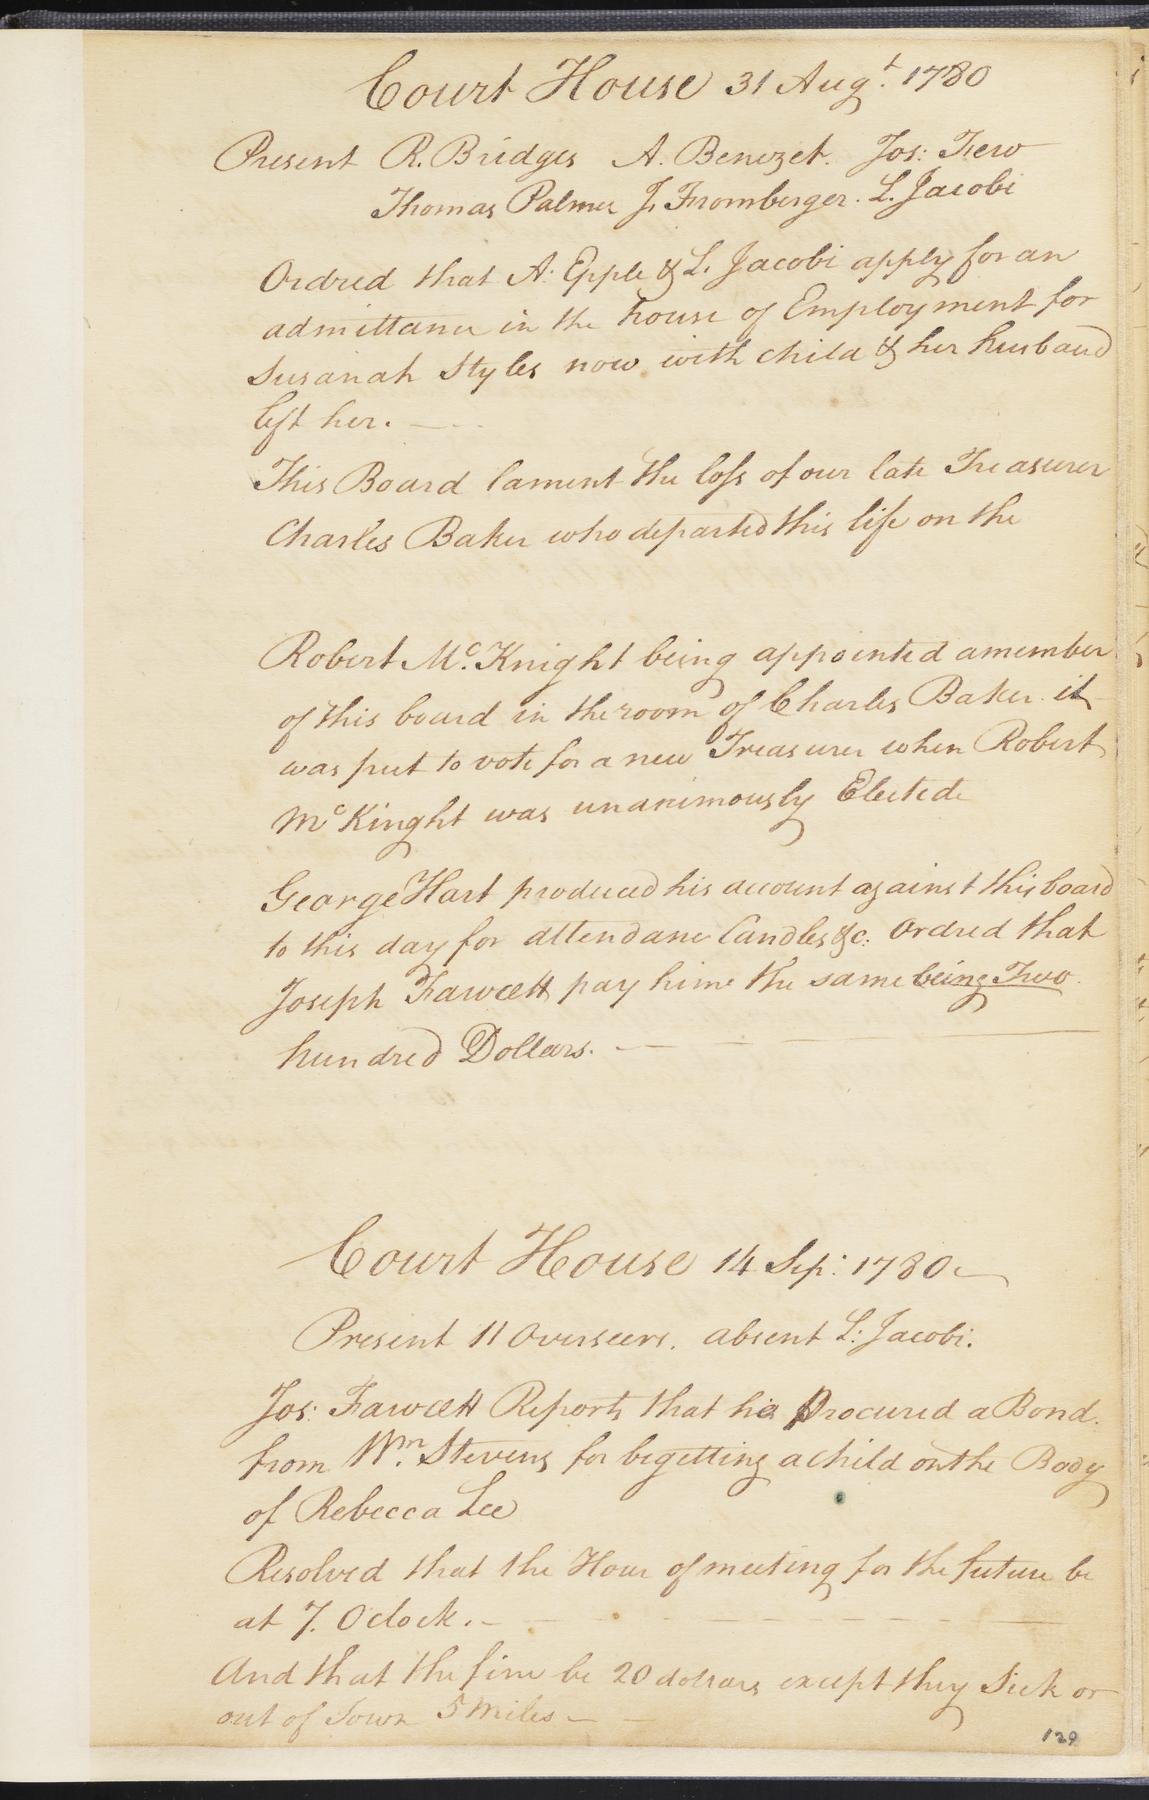 Court House 31 Augt. 1780
Present R. Bridges A. Benezet. Jos: Few
Thomas Palmer J. Fromberger. L. Jacobi
Ordred that A. Epple & L. Jacobi apply for an
admittance in the house of Employment for
Susanah Styles now with child & her husband
left her.
This Board lament the loss of our late Treasurer
Charles Baker who departed this life on the
Robert Mc.Knight being appointed a member
of this board in the room of Charles Baker it
was put to vote for a new Treasurer when Robert
McKinght was unanimously Elected
George Hart produced his account against this board
to this day for attendance Candles &c: Ordred that
Joseph Fawcett pay hime the same being Two
hundred Dollars.
Court House 14 Sep: 1780
Present 11 Overseers. absent L: Jacobi.
Jos: Fawcett Reports that he Procured a Bond.
from Wm. Stevens for begetting a child on the Body
of Rebecca Lee
Resolved that the Hour of meeting for the future be
at 7. Oclock.
And that the fine be 20 dollars except they Sick or
out of Town 5 Miles
129